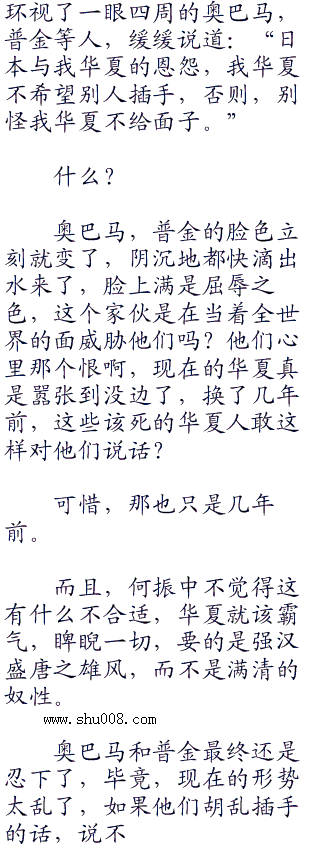 环视了一眼四周的奥巴马，
普金等人，缓缓说道：“日
本与我华夏的恩怨，我华夏
不希望别人插手，否则，别
怪我华夏不给面子。”
什么？
奥巴马，普金的脸色立
刻就变了，阴沉地都快滴出
水来了，脸上满是屈辱之
色，这个家伙是在当着全世
界的面威胁他们吗？他们心
里那个恨啊，现在的华夏真
是嚣张到没边了，换了几年
前，这些该死的华夏人敢这
样对他们说话？
可惜，那也只是几年
前。
而且，何振中不觉得这
有什么不合适，华夏就该霸
气，睥睨一切，要的是强汉
盛唐之雄风，而不是满清的
奴性。
www.shu008.com
奥巴马和普金最终还是
忍下了，毕竟，现在的形势
太乱了，如果他们胡乱插手
的话，说不